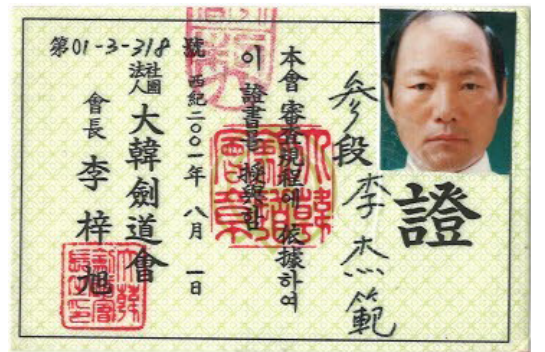 證
參段 李杰範
本會 審査規程에 依據하여
이 證書를 授與함
西紀二〇〇一年 八月 一日
第01-3-318號
社團法人 大韓劍道會
會長 李梓旭